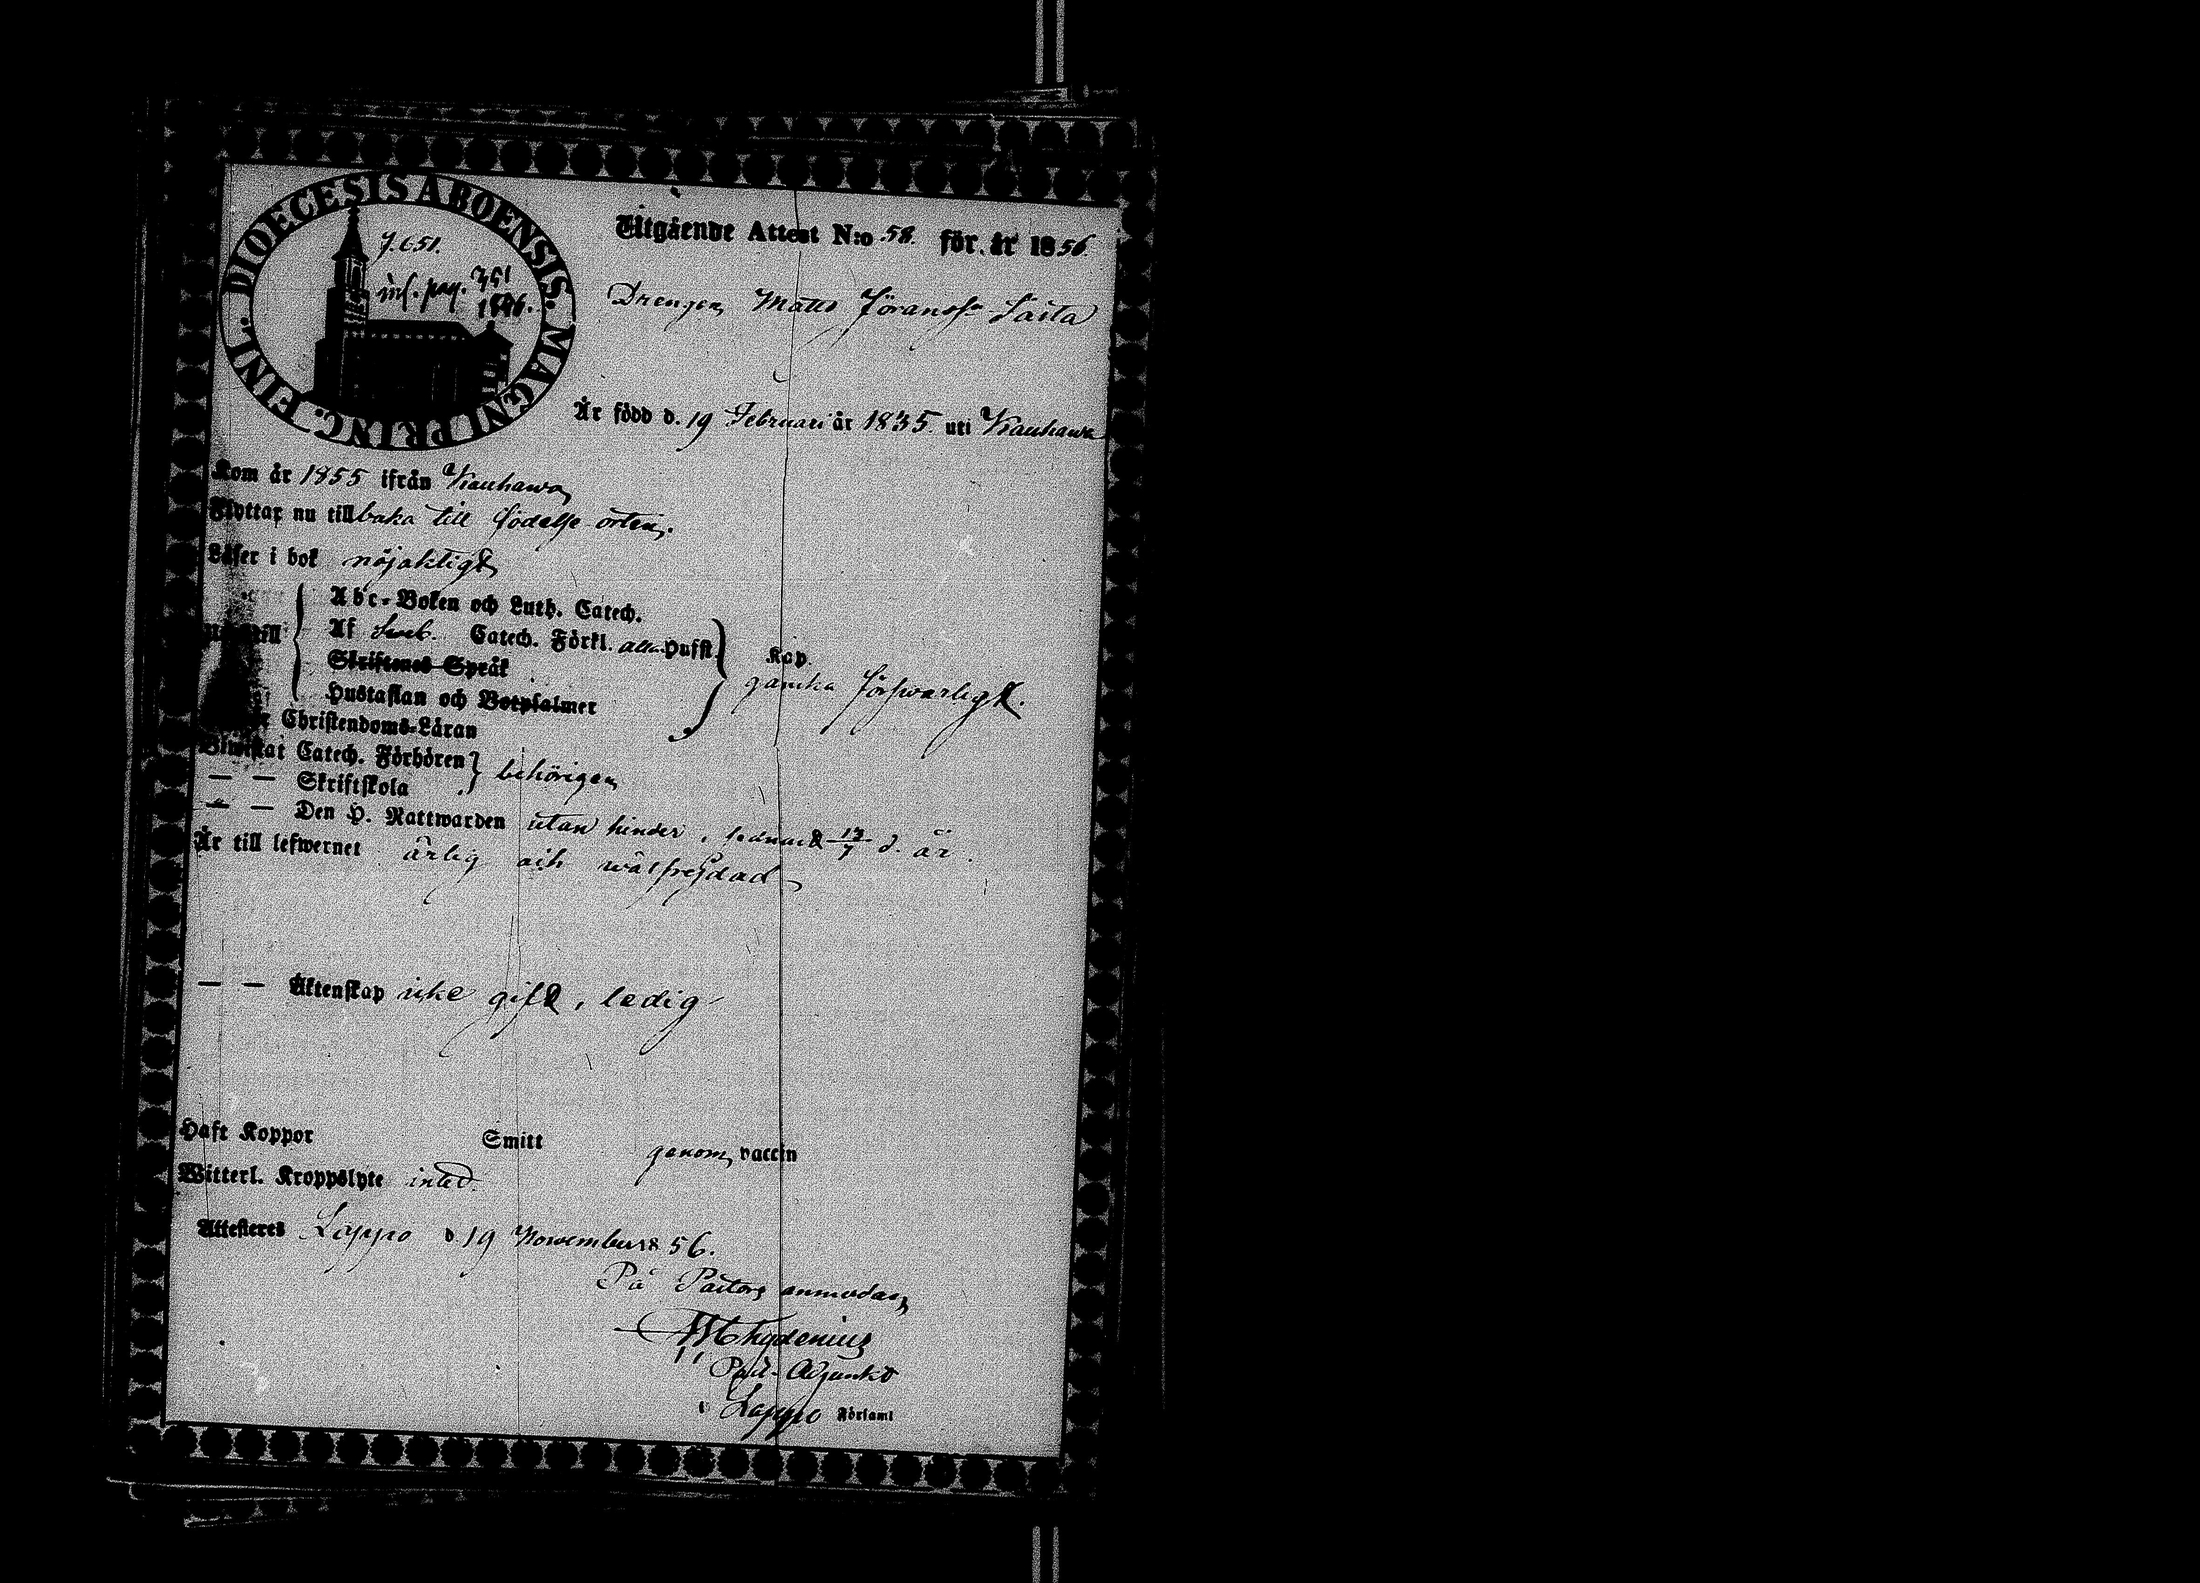 DIOECESIS ABOENSIS. MAGNI PRINC. FINL.
inf. pag. 351
1846.
Utgående Attest N:o 58. för år 1856.
Drengen Matts Jöransson Saita
Är född d. 19 Februari år 1835. uti Kauhawa
Kom år 1855 ifrån Kauhawa
Flyttar nu tillbaka till födelse orten.
Läser i bok nöjaktigt
Abc-Boken och Luth. Catech.
Af Sveb. Catech. Förkl. alla Hufst.
Skriftenes Språk
Hustaflan och Botpsalmer
Kap.
ganska förswarligt.
Christendoms-Läran
Biwistat Catech. Förhören
— — Skriftskola
behörigen
— — Den H. Nattwarden utan hinder, senast 13/7 d. år.
Är till lefwernet ärlig och wälfrejdad
— — Äktenskap icke gift, ledig
Haft Koppor Smitt genom vaccin
Witterl. Kroppslyte intet.
Attesteres Lappo d. 19 November 56.
På Pastors anmodan
Chydenius
Past. Adjunkt
i Lappo Församl